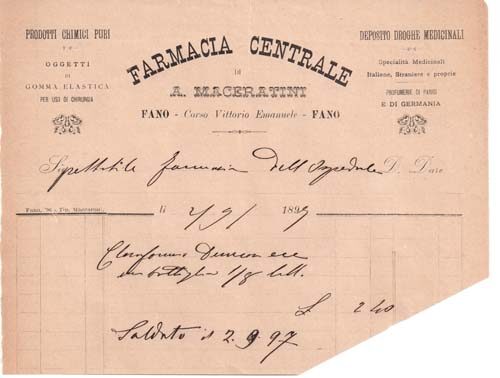 PRODOTTI CHIMICI PURI
OGGETTI
DI
GOMMA ELASTICA
PER USO DI CHIRURGIA
FARMACIA CENTRALE
DI
A. MACERATINI
FANO - Corso Vittorio Emanuele - FANO
DEPOSITO DROGHE MEDICINALI
Specialità Medicinali
Italiane, Straniere e proprie
PROFUMERIE DI PARIGI
E DI GERMANIA
Spettabile farmacia dell'Ospedale D. Dare
Fano,
li 2/9/ 1897
Cloroformio
in bottiglia 1/8
L 2 40
Saldato il 2.9.97